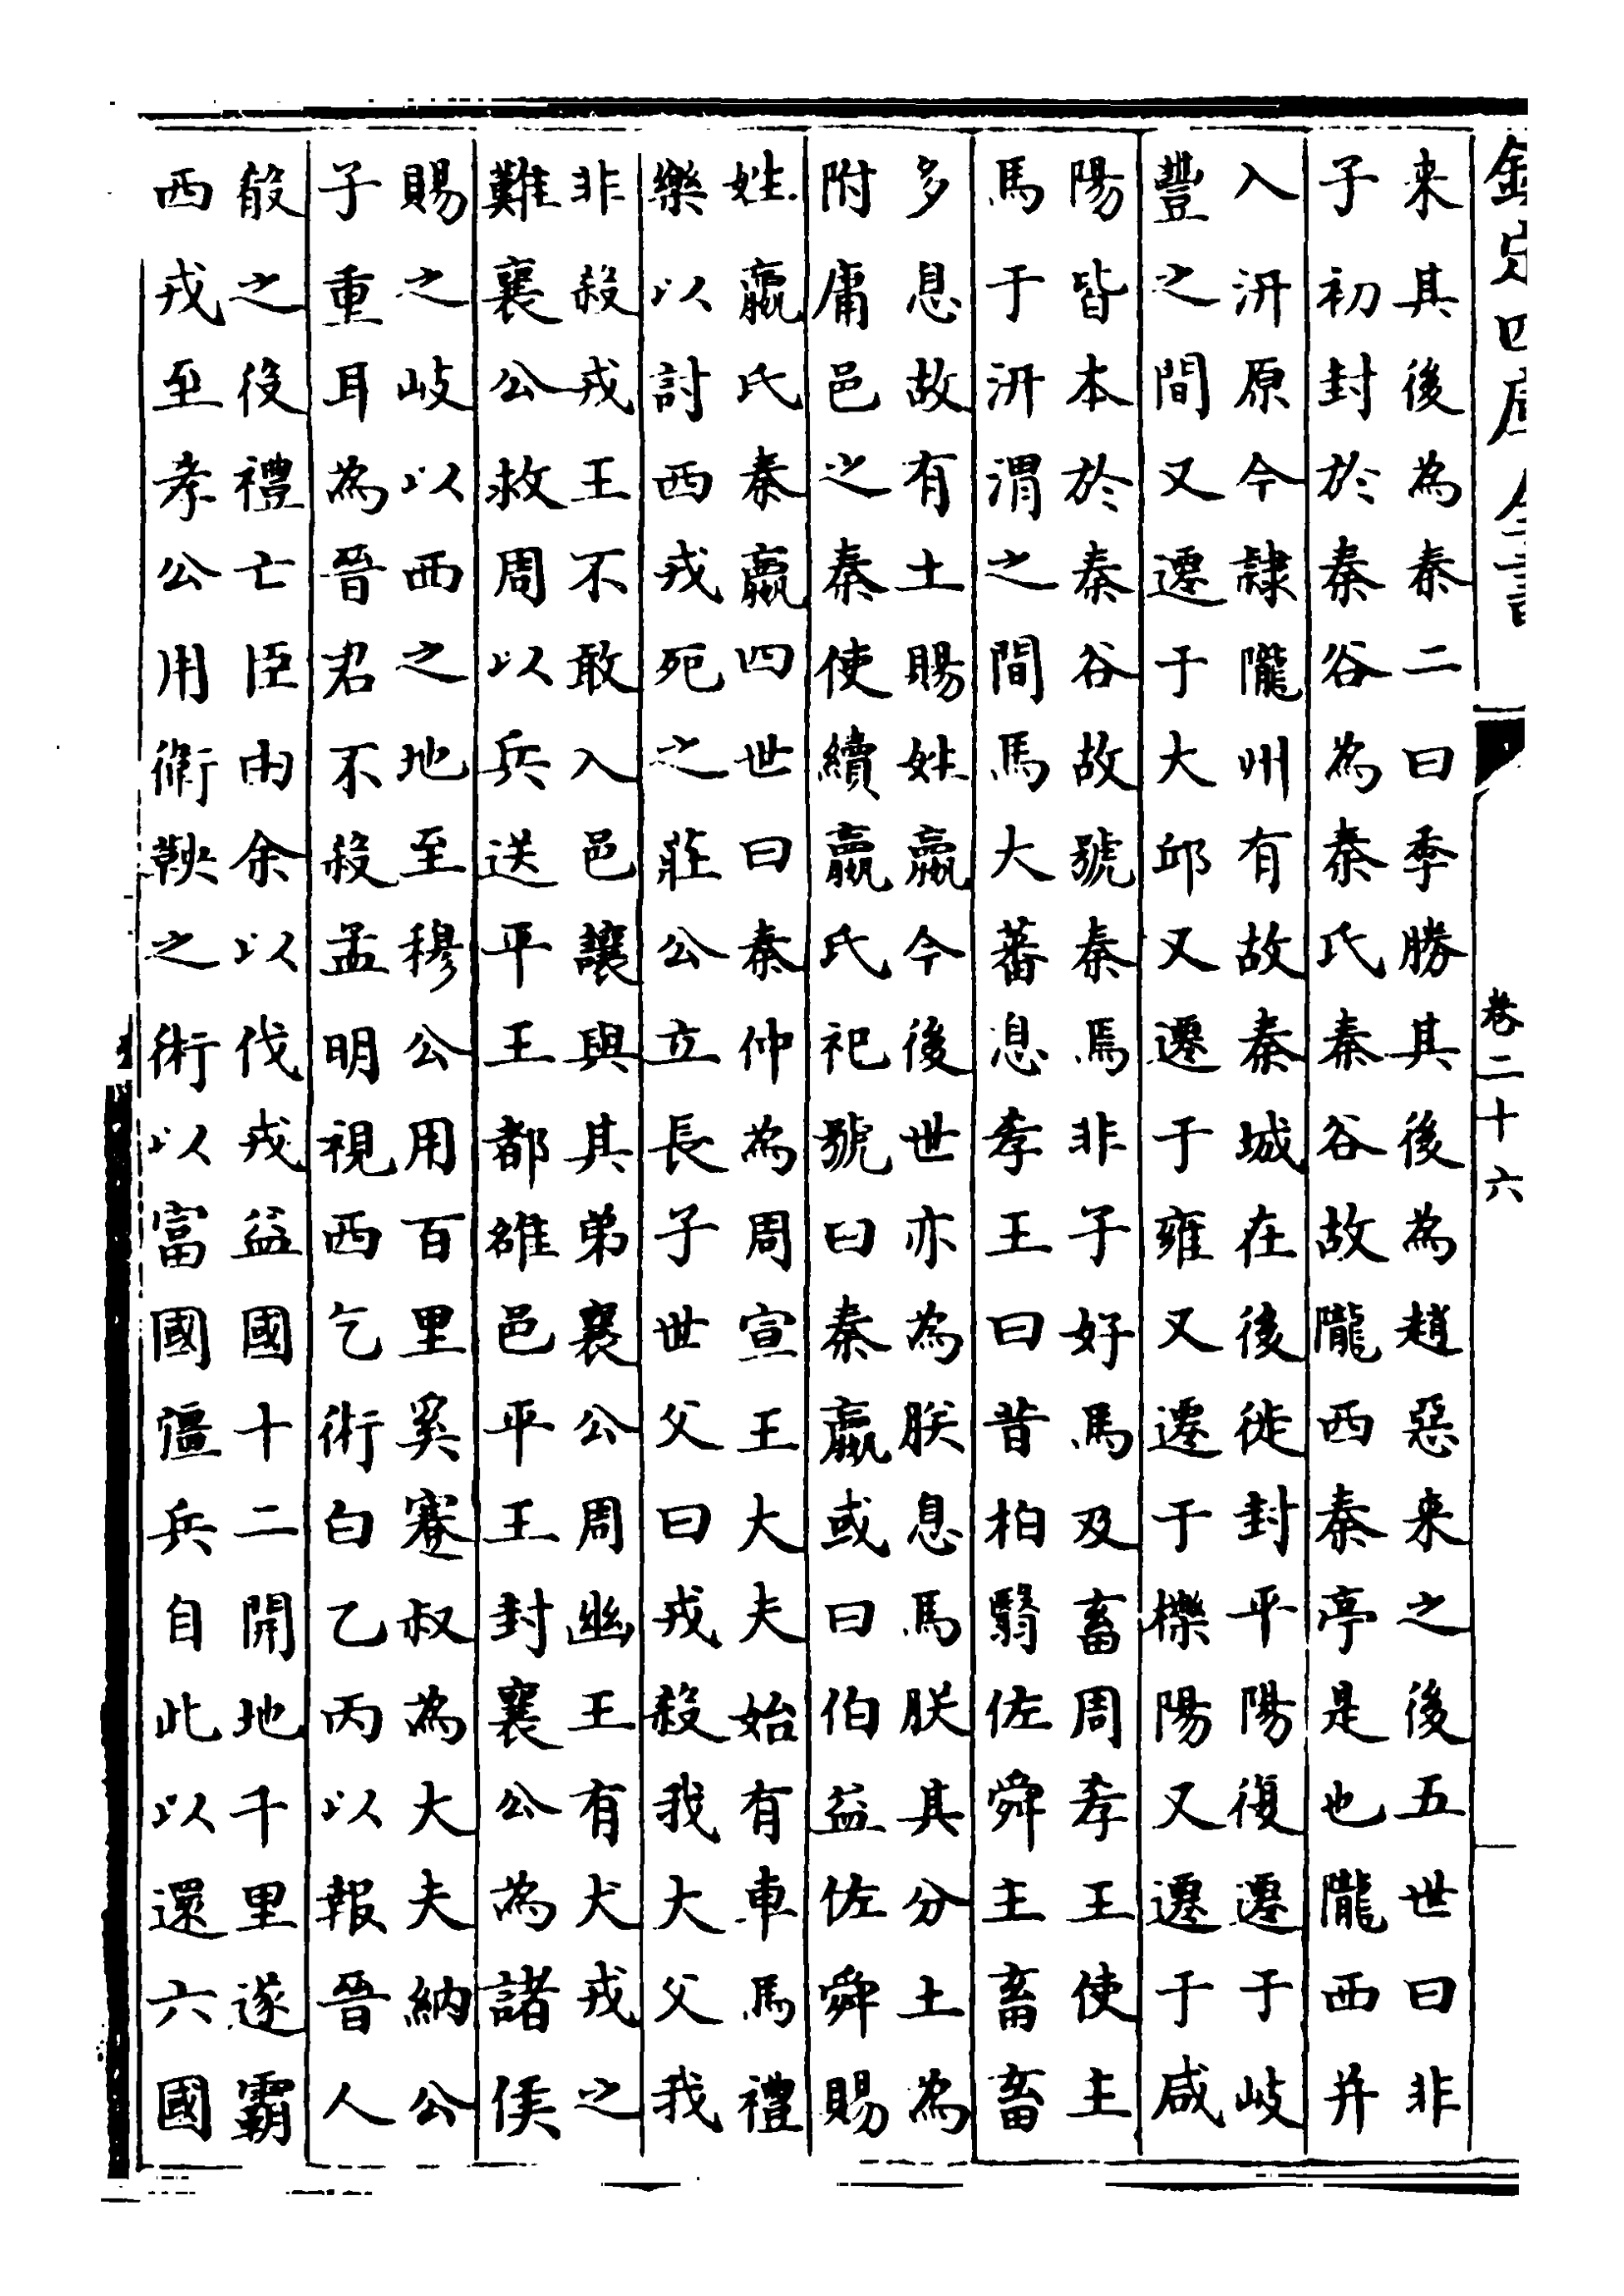 欽定四庫全書
卷二十六
来其後為秦二曰季勝其後為趙惡来之後五世曰非
子初封於秦谷為秦氏秦谷故隴西秦亭是也隴西并
入汧原今隷隴州有故秦城在後徙封平陽復遷于岐
豐之間又遷于大邱又遷于雍又遷于櫟陽又遷于咸
陽皆本於秦谷故號秦焉非子好馬及畜周孝王使主
馬于汧渭之間馬大蕃息孝王曰昔柏翳佐舜主畜畜
多息故有土賜姓嬴今後世亦為朕息馬朕其分土為
附庸邑之秦使續嬴氏祀號曰秦嬴或曰伯益佐舜賜
姓嬴氏秦嬴四世曰秦仲為周宣王大夫始有車馬禮
樂以討西戎死之莊公立長子世父曰戎殺我大父我
非殺戎王不敢入邑讓與其弟襄公周幽王有犬戎之
難襄公救周以兵送平王都雒邑平王封襄公為諸侯
賜之岐以西之地至穆公用百里奚蹇叔為大夫納公
子重耳為晉君不殺孟明視西乞術白乙丙以報晉人
殽之役禮亡臣由余以伐戎益國十二開地千里遂霸
西戎至孝公用衛鞅之術以富國彊兵自此以還六國